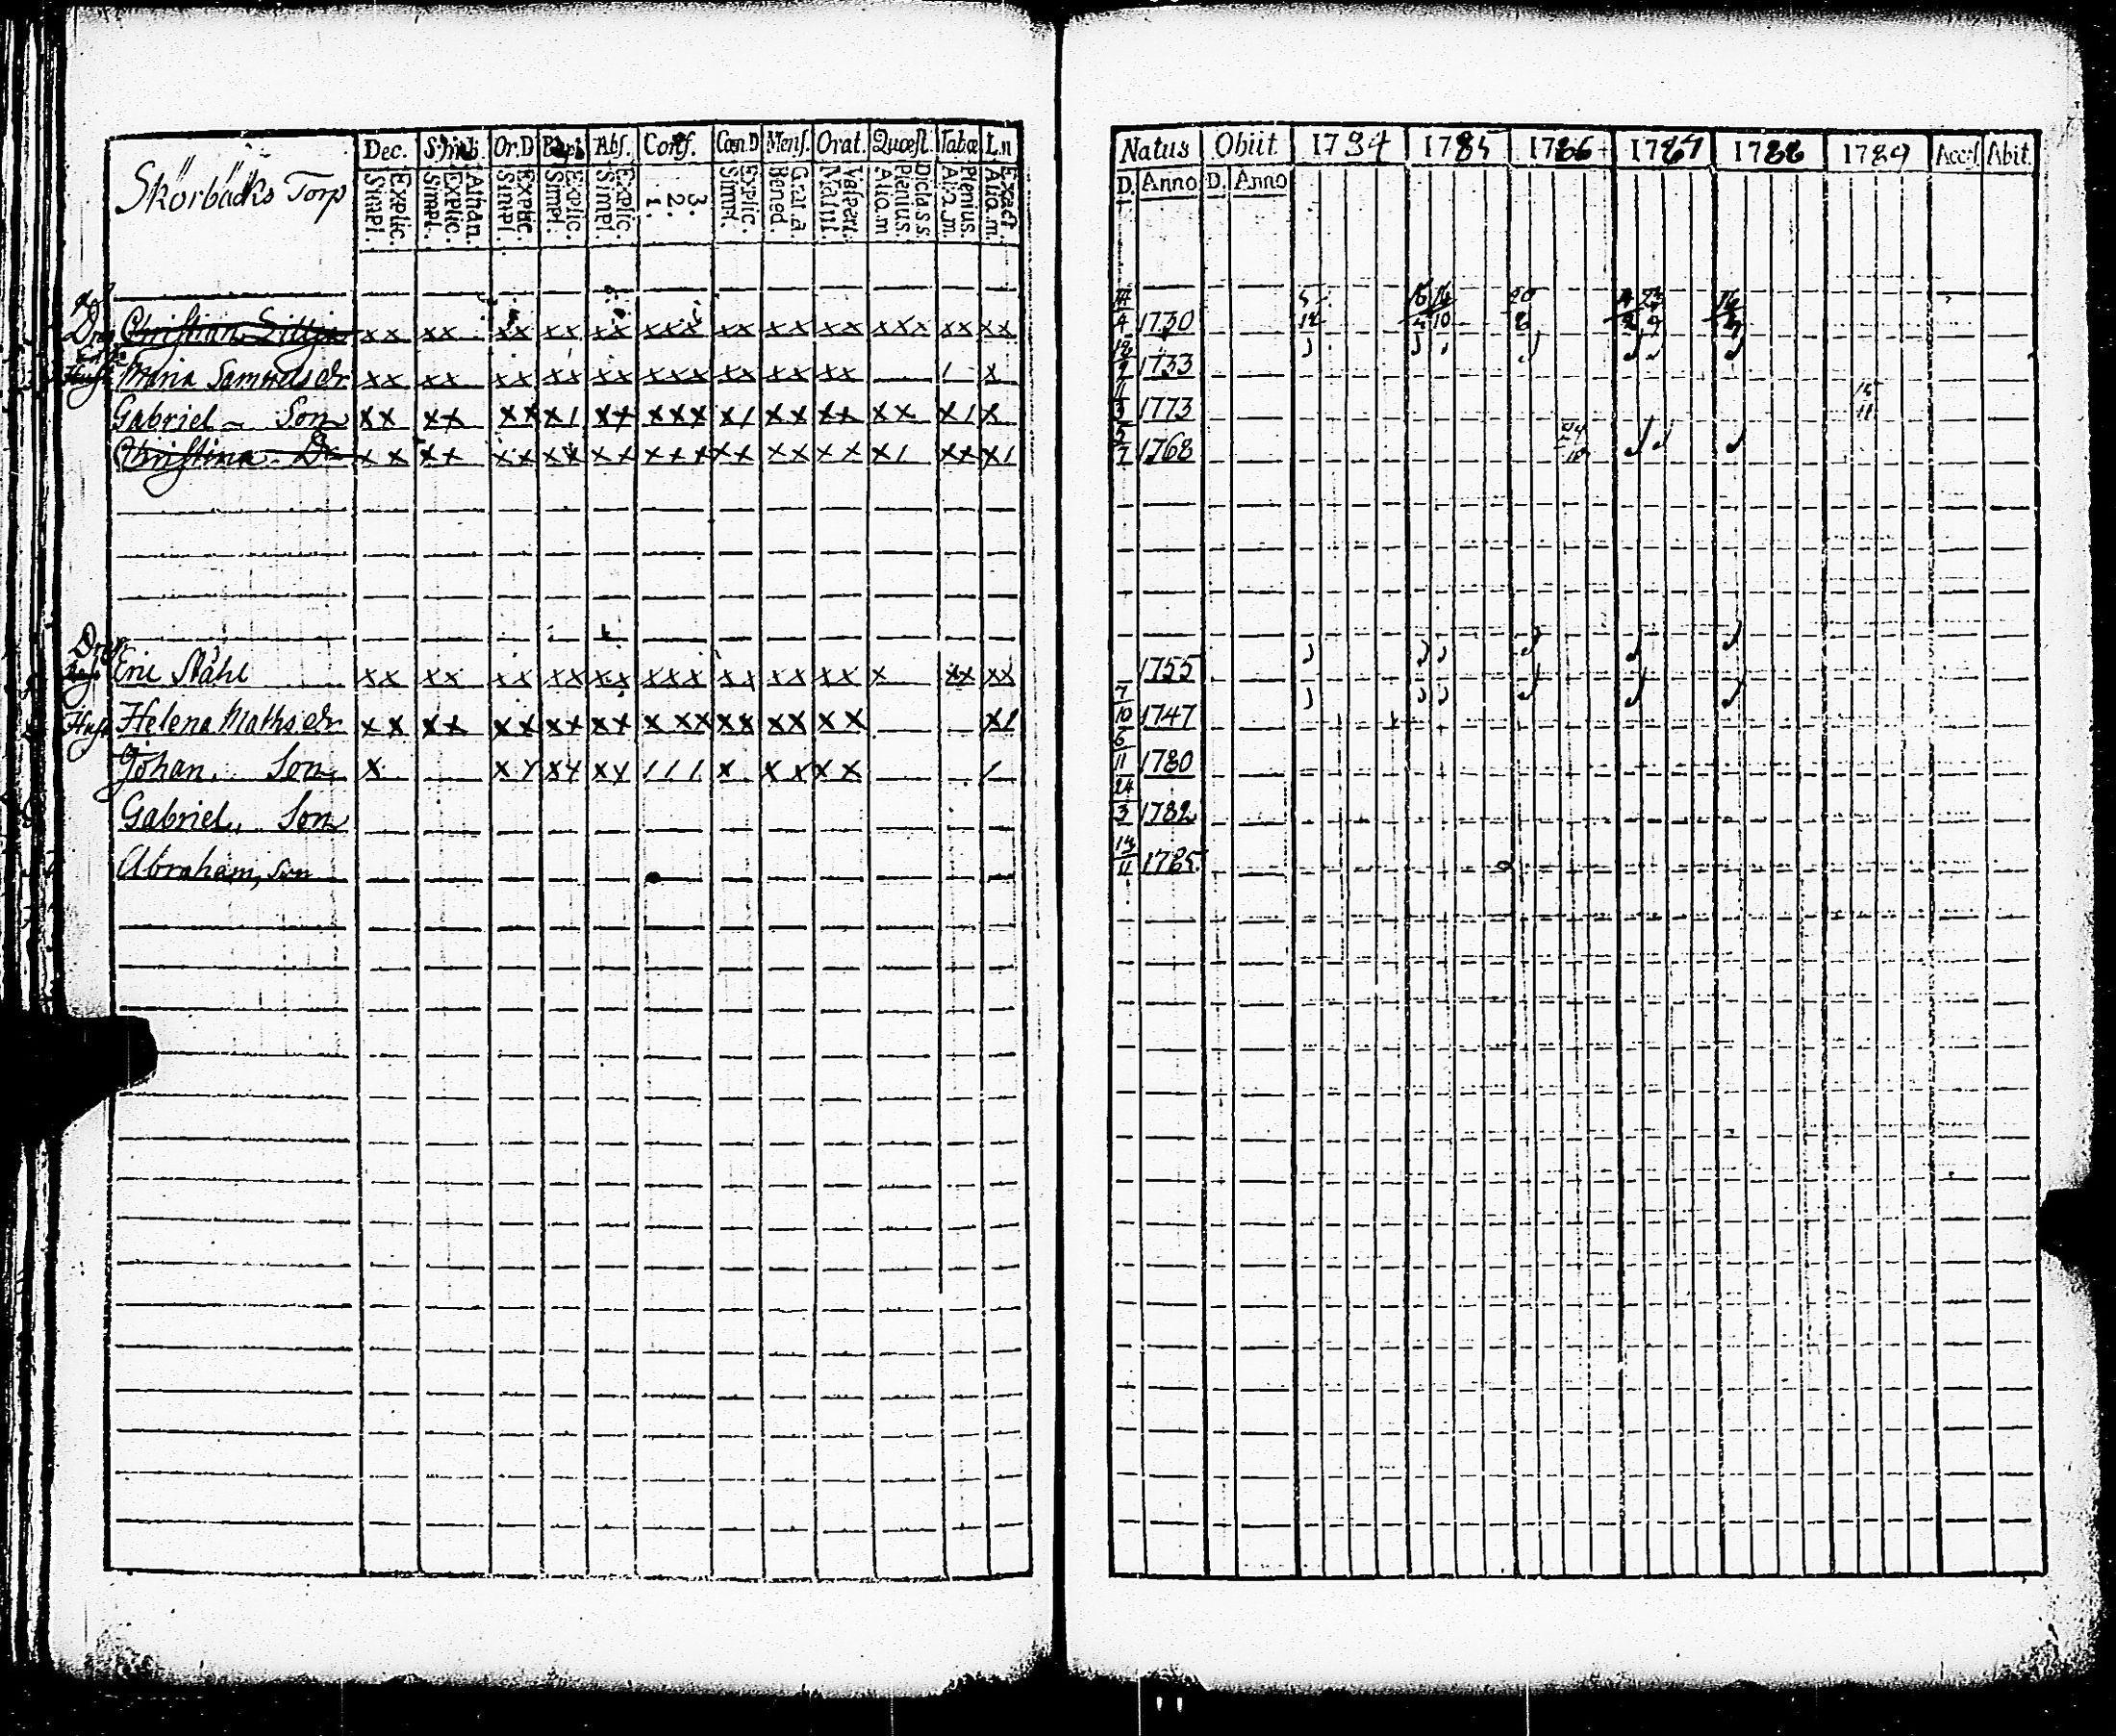 Skörbäcks Torp Dec. Symb. Or.D Bapt. Abs. Conf. Cœn.D Mens. Orat. Quæst. Tabæ L.n
Explic. Simpl. Athan. Explic. Simpl. Explic. Simpl. Explic. Simpl. Explic. Simpl. 3. 2. 1. Explic. Simpl. Grat.a. Bened. Vespert. Matut. Dicla.s.s. Plenius. Alio.m Plenius. Alio.m. Exact. Alio.m.
Natus Obiit 1784 1785 1786 1787 1788 1789 Access. Abit.
D. Anno D. Anno
Christian xx xx xx xx xx xxx xx xx xx xxx xx xx 4 1730
Maria Samuels dr xx xx xx xx xx xxx xx xx xx 1 x 1733
Gabriel Son xx xx xx x1 xx xxx x1 xx xx xx x1 x 1773
Christina Dr xx xx xx xx xx xxx xx xx xx x1 xx x1 7 1768
Drag.
Eric Ståhl xx xx xx xx xx xxx xx xx xx x xx xx 1755
Hust Helena Maths dr xx xx xx xx xx xxx xx xx xx x1 7/10 1747
Johan, Son x xx xx xx 111 x xx xx 1 6/11 1780
Gabriel, Son 24/3 1782
Abraham, Son 13/11 1785